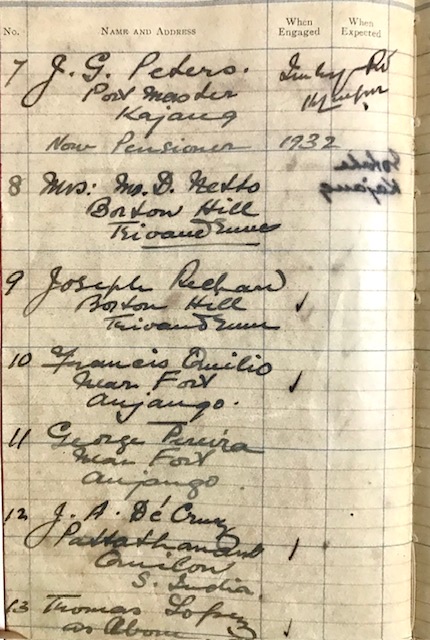 No. NAME AND ADDRESS When Engaged When Expected
7 J. G. Peters.
Post Master
Kajang
Now Pensioner 1932
8 Mrs: M. D. Netto
Borton Hill
Trivandrum
9 Joseph
Borton Hill ✓
Trivandrum
10 Francis
Near Fort ✓
Anjango.
11 George Pereira
Near Fort
Anjango
12 J. A. De Cruz
Quilon
S. India.
13 Thomas Lopez
as Above ✓